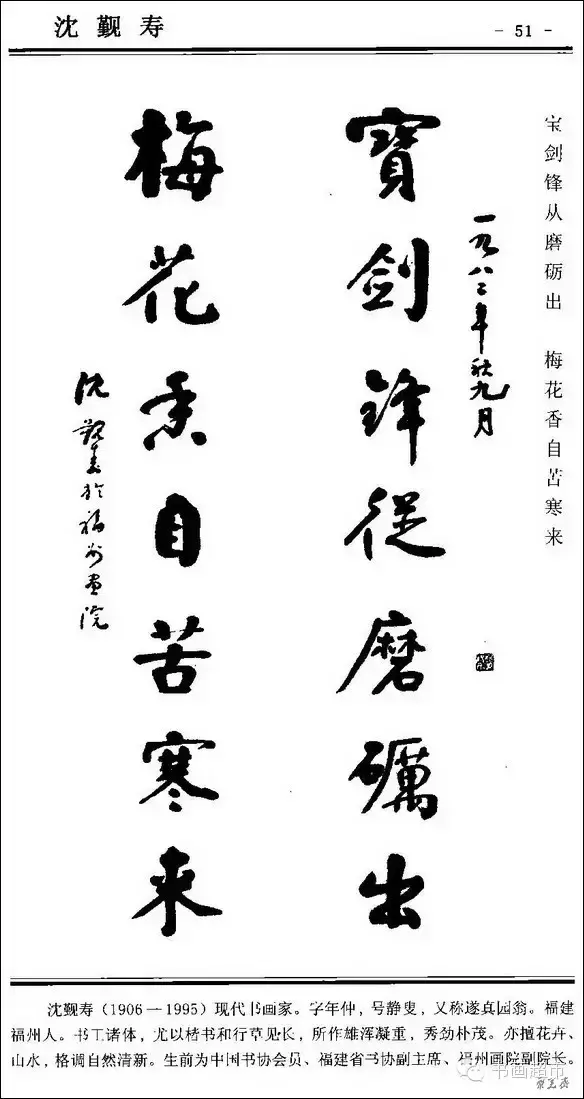 沈觐寿
- 51 -
宝剑锋从磨砺出 梅花香自苦寒来
一九八二年秋九月
寶劍鋒從磨礪出
梅花香自苦寒来
沈觐寿於福州画院
沈觐寿（1906—1995）现代书画家。字年仲，号静叟，又称遂真园翁。福建
福州人。书工诸体，尤以楷书和行草见长，所作雄浑凝重，秀劲朴茂。亦擅花卉、
山水，格调自然清新。生前为中国书协会员、福建省书协副主席、福州画院副院长。
书画超市